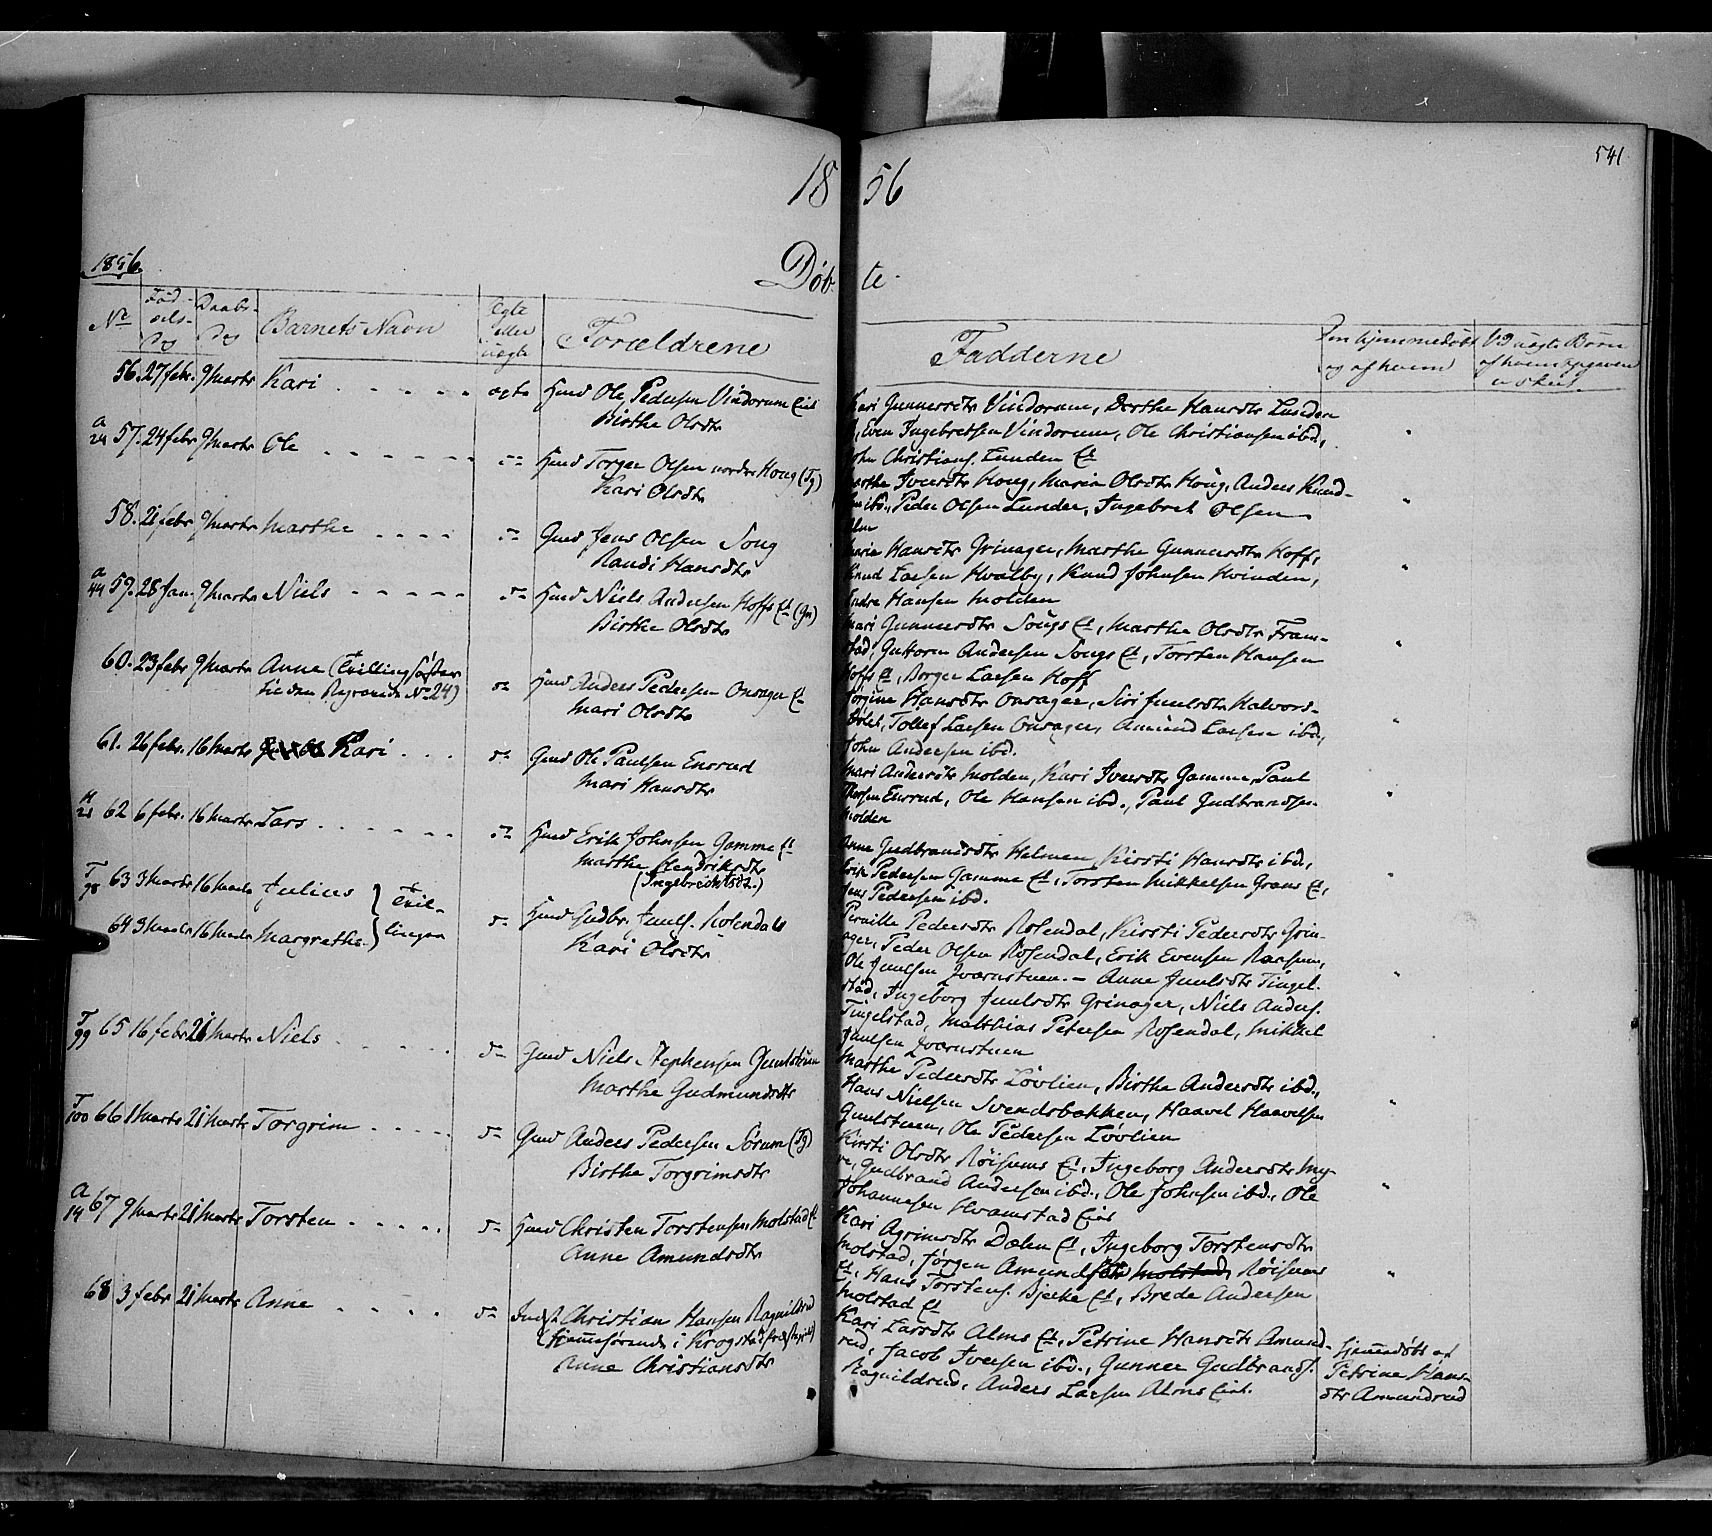 541
18 56
1856.
Døb- te.
No Fød-els-Dag Daabs-Dag Barnets Navn Ægte eller uægte Forældrene Fadderne Om hjemmedøbt og af hvem Ved uægte Børn af hvem Opgaven er skeet
56. 27 febr. 9 Marts Kari ægte Huusmd Ole Pedersen Vindorum Eiet
Birthe Olsdtr
Kari Gunnersdtr Vindorum, Dorthe Hansdtr Lunden
Even Ingebretsen Vindorum, Ole Christiansen ibd.,
John Christians. Lunden Et
a 24 57. 24 febr 9 Marts Ole Huusmd Torger Olsen nordre Houg (Tg)
Kari Olsdtr
Marthe Iversdtr Houg, Maria Olsdtr Houg, Anders Knud-
sen ibd., Peder Olsen Lunder, Ingebret Olsen
58. 21 febr 9 Marts Marthe Gmd Jens Olsen Song
Randi Hansdtr
Maria Hansdtr Grinager, Marthe Gunnersdtr Hoff,
Knud Larsen Hvalby, Knud Johnsen Hvinden,
Endre Hansen Molden
a 44 59. 28 Jan. 9 Marts Niels Huusmd Niels Andersen Hoffs Et (Gr)
Birthe Olsdtr
Mari Gunnersdtr Songs Et, Marthe Olsdtr Fram-
stad, Guttorm Andersen Songs Et, Torsten Hansen
Hoffs Et, Borger Larsen Hoff
60. 23 febr 9 Marts Anne (Tvillingsøster
til den No 24) Huusmd Anders Pedersen Onsager Et
Mari Olsdtr
Jørgine Hansdtr Onsager, Siri Juulsdtr Halvors-
bølet, Tollef Larsen Onsager, Amund Larsen ibd.,
John Andersen ibd.
61. 26 febr. 16 Marts Kari Gmd Ole Paulsen Ensrud
Mari Hansdtr
Mari Andersdtr Molden, Kari Iversdtr Gamme, Paul
Thorsen Ensrud, Ole Hansen ibd., Paul Gudbrandsen
Molden
62 6 febr. 16 Marts Lars Huusmd Erik Johnsen Gamme Et
Marthe Hendriksdtr
(Ingebrechtsdt.)
Anne Gudbrandsdtr Helmen, Kirsti Hansdtr ibd.,
Erik Pedersen Gamme Et, Torsten Mikkelsen Grans Et,
Jens Pedersen ibd.
T 98 63 3 Marts 16 Marts Julius } Tvil-
64 3 Marts 16 Marts Margrethe } lingen Huusmd Gudbr. Juuls. Rosendals
Kari Olsdtr
Pernille Pedersdtr Rosendal, Kirsti Pedersdtr Grin-
ager, Peder Olsen Rosendal, Erik Evensen Raasum,
Ole Juulsen Qværnstuen. — Anne Juulsdtr Tingel-
stad, Ingeborg Juulsdtr Grinager, Niels Anders.
Tingelstad, Matthias Petersen Rosendal, Mikkel
Juulsen Qværnstuen
T 99 65 16 febr 21 Marts Niels Gmd Niels Stephensen Gunstuen
Marthe Gudmundsdtr
Marthe Pedersdtr Løvlien, Birthe Andersdtr ibd.,
Hans Nielsen Svendsbakken, Haavel Haavelsen
Ole Pedersen Løvlien
T 100 66 1 Marts 21 Marts Torgrim Gmd Anders Pedersen Sørum (Tg)
Birthe Torgrimsdtr
Kirsti Olsdtr Røisums Et, Ingeborg Andersdtr My-
re, Gudbrand Andersen ibd., Ole Johnsen ibd., Ole
Johannesen Hvamstad Eiet
a 14 67 9 Marts 21 Marts Torsten Huusmd Christen Torstensen Molstad Et
Anne Amundsdtr
Kari Agrimsdtr Dælen Et, Ingeborg Torstensdtr
Molstad, Jørgen Amundsen Molstad, Røisums
Et, Hans Torstens. Bjerke Et, Brede Andersen
Molstad Et
68 3 febr 21 Marts Anne Indst. Christian Hansen Ragnildrud
(hjemmehørende i Krogstad Præstegjeld)
Anne Christiansdtr
Kari Larsdtr Alms Et, Petrine Hansdtr Amund-
rud, Jacob Iversen ibd., Gunner Gudbrands.
Ragnildrud, Anders Larsen Alms Eiet.
hjemmedøbt af
Petrine Hans-
dtr Amundrud